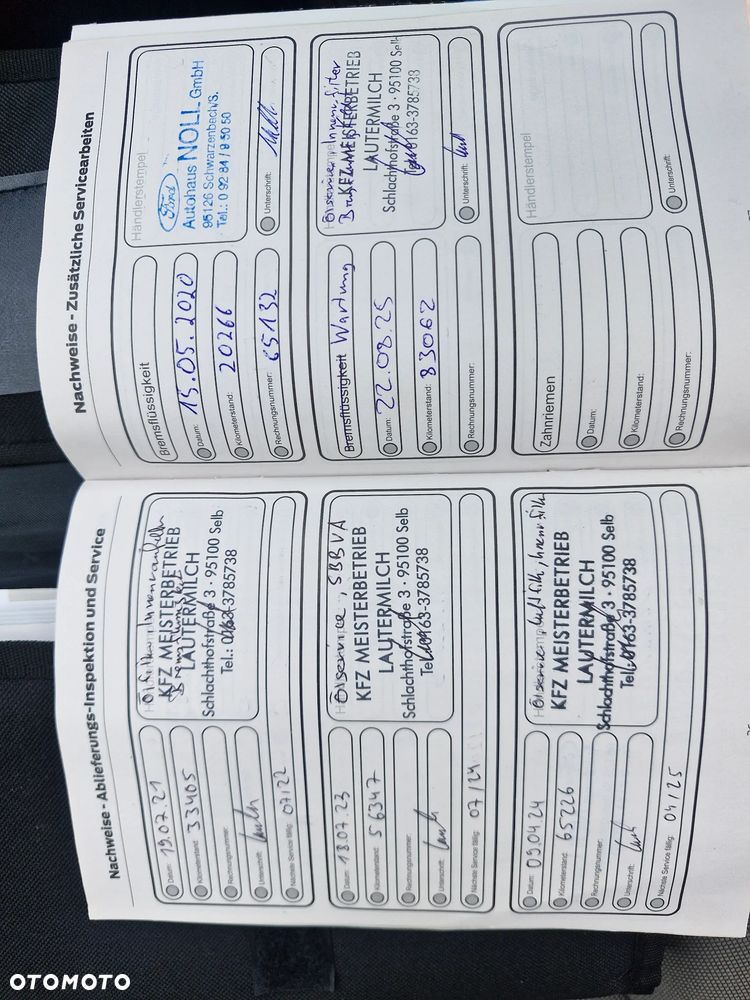 Nachweise - Ablieferungs-Inspektion und Service
Datum: 19.07.21
Kilometerstand: 33405
Rechnungsnummer:
Unterschrift:
Nächste Service fällig: 07/22
KFZ MEISTERBETRIEB
LAUTERMILCH
Schlachthofstraße 3 · 95100 Selb
Tel.: 0163-3785738
Datum: 18.07.23
Kilometerstand: 56347
Rechnungsnummer:
Unterschrift:
Nächste Service fällig: 07/24
Ölservice, SBBVA
KFZ MEISTERBETRIEB
LAUTERMILCH
Schlachthofstraße 3 · 95100 Selb
Tel.: 0163-3785738
Datum: 09.04.24
Kilometerstand: 65226
Rechnungsnummer:
Unterschrift:
Nächste Service fällig: 04/25
Ölservice
KFZ MEISTERBETRIEB
LAUTERMILCH
Schlachthofstraße 3 · 95100 Selb
Tel.: 0163-3785738
Nachweise - Zusätzliche Servicearbeiten
Bremsflüssigkeit
Datum: 15.05.2020
Kilometerstand: 20266
Rechnungsnummer: 65132
Händlerstempel
Ford
Autohaus NOLL GmbH
95126 Schwarzenbach/S.
Tel.: 0 92 84 / 9 50 50
Unterschrift:
Bremsflüssigkeit Wartung
Datum: 22.08.25
Kilometerstand: 83062
Rechnungsnummer:
Ölservice Innenfilter
KFZ MEISTERBETRIEB
LAUTERMILCH
Schlachthofstraße 3 · 95100 Selb
0163-3785738
Unterschrift:
Zahnriemen
Datum:
Kilometerstand:
Rechnungsnummer:
Händlerstempel
Unterschrift:
OTOMOTO